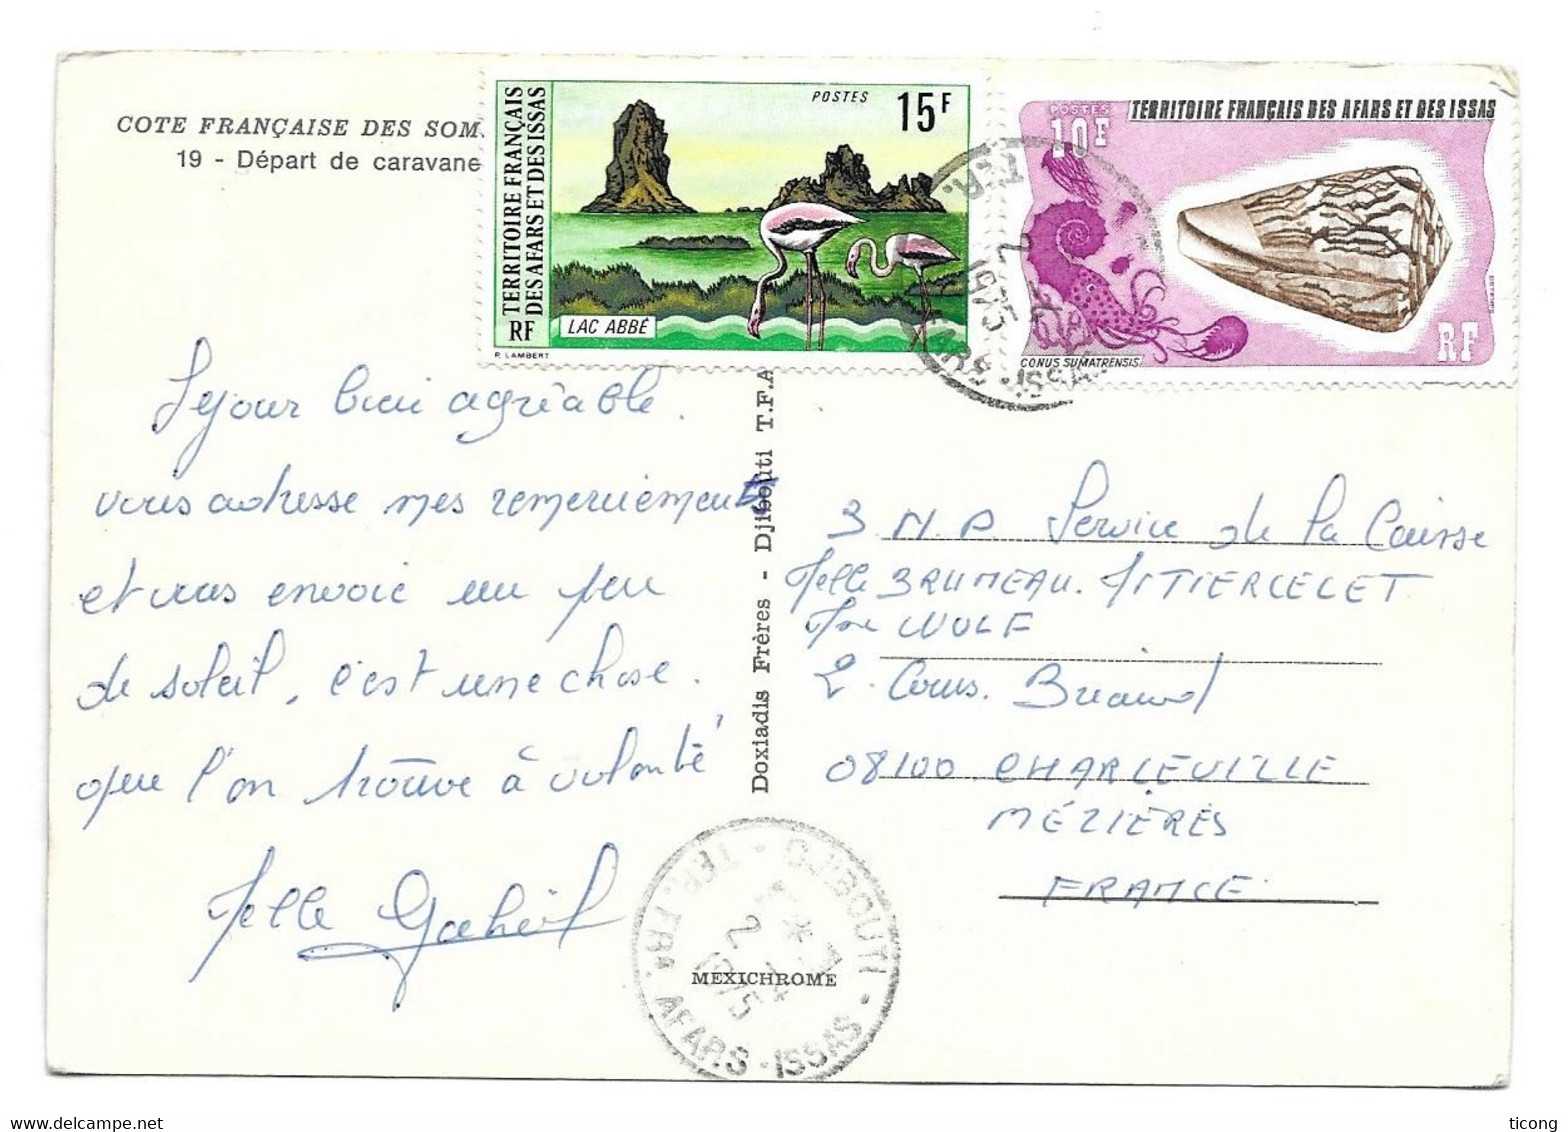 COTE FRANÇAISE DES SOM
19 - Départ de caravane
TERRITOIRE FRANÇAIS
DES AFARS ET DES ISSAS
RF
POSTES
15F
LAC ABBÉ
P. LAMBERT
POSTES
10F
TERRITOIRE FRANÇAIS DES AFARS ET DES ISSAS
CONUS SUMATRENSIS
RF
TER.
2
1975
AFARS - ISSAS
Séjour bien agréable.
vous adresse mes remerciements
et vous envoie un peu
de soleil, c'est une chose.
que l'on trouve à volonté
Melle
Doxiadis Frères - Djibouti T.F.A
Service de la Caisse
Melle BRUMEAU.
Me WOLF
2. Cours. Briand
08100 CHARLEVILLE
MÉZIÈRES
FRANCE.
DJIBOUTI
2 4
1975
TER. FR. AFARS - ISSAS
MEXICHROME
delcampe.net
ticong